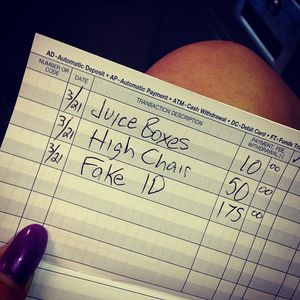 AD-Automatic Deposit • AP-Automatic Payment • ATM-Cash Withdrawal • DC-Debit Card • FT-Funds
NUMBER OR CODE TRANSACTION DESCRIPTION PAYMENT, FEE, WITHDRAWAL (-)
3/21 Juice Boxes 10 00
3/21 High Chair 50 00
3/21 Fake ID 175 00